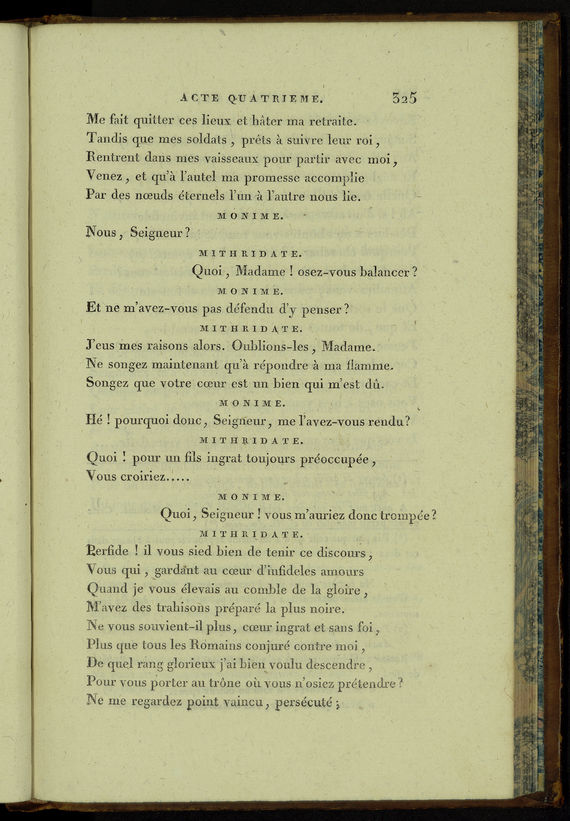 ACTE QUATRIEME. 325
Me fait quitter ces lieux et hâter ma retraite.
Tandis que mes soldats, prêts à suivre leur roi,
Rentrent dans mes vaisseaux pour partir avec moi,
Venez, et qu'à l'autel ma promesse accomplie
Par des nœuds éternels l'un à l'autre nous lie.
MONIME.
Nous, Seigneur?
MITHRIDATE.
Quoi, Madame! osez-vous balancer?
MONIME.
Et ne m'avez-vous pas défendu d'y penser?
MITHRIDATE.
J'eus mes raisons alors. Oublions-les, Madame.
Ne songez maintenant qu'à répondre à ma flamme.
Songez que votre cœur est un bien qui m'est dû.
MONIME.
Hé! pourquoi donc, Seigneur, me l'avez-vous rendu?
MITHRIDATE.
Quoi! pour un fils ingrat toujours préoccupée,
Vous croiriez.....
MONIME.
Quoi, Seigneur! vous m'auriez donc trompée?
MITHRIDATE.
Perfide! il vous sied bien de tenir ce discours,
Vous qui, gardant au cœur d'infideles amours
Quand je vous élevais au comble de la gloire,
M'avez des trahisons préparé la plus noire.
Ne vous souvient-il plus, cœur ingrat et sans foi,
Plus que tous les Romains conjuré contre moi,
De quel rang glorieux j'ai bien voulu descendre,
Pour vous porter au trône où vous n'osiez prétendre?
Ne me regardez point vaincu, persécuté;